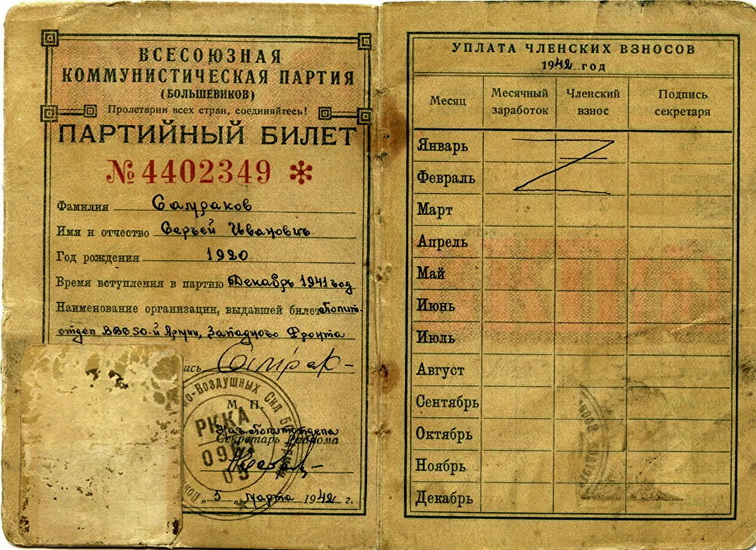 ВСЕСОЮЗНАЯ
КОММУНИСТИЧЕСКАЯ ПАРТИЯ
(БОЛЬШЕВИКОВ)
Пролетарии всех стран, соединяйтесь!
ПАРТИЙНЫЙ БИЛЕТ
№ 4402349 *
Фамилия
Имя и отчество Сергей Иванович
Год рождения 1920
Время вступления в партию Декабрь 1941 год
Наименование организации, выдавшей билет Полит-
отдел ВВС 50-й Армии, Западного Фронта
М. П.
Нач. Политотдела
Секретарь Райкома
Воздушных Сил
РККА
"5" марта 1942 г.
УПЛАТА ЧЛЕНСКИХ ВЗНОСОВ
1942 год
Месяц Месячный заработок Членский взнос Подпись секретаря
Январь
Февраль
Март
Апрель
Май
Июнь
Июль
Август
Сентябрь
Октябрь
Ноябрь
Декабрь